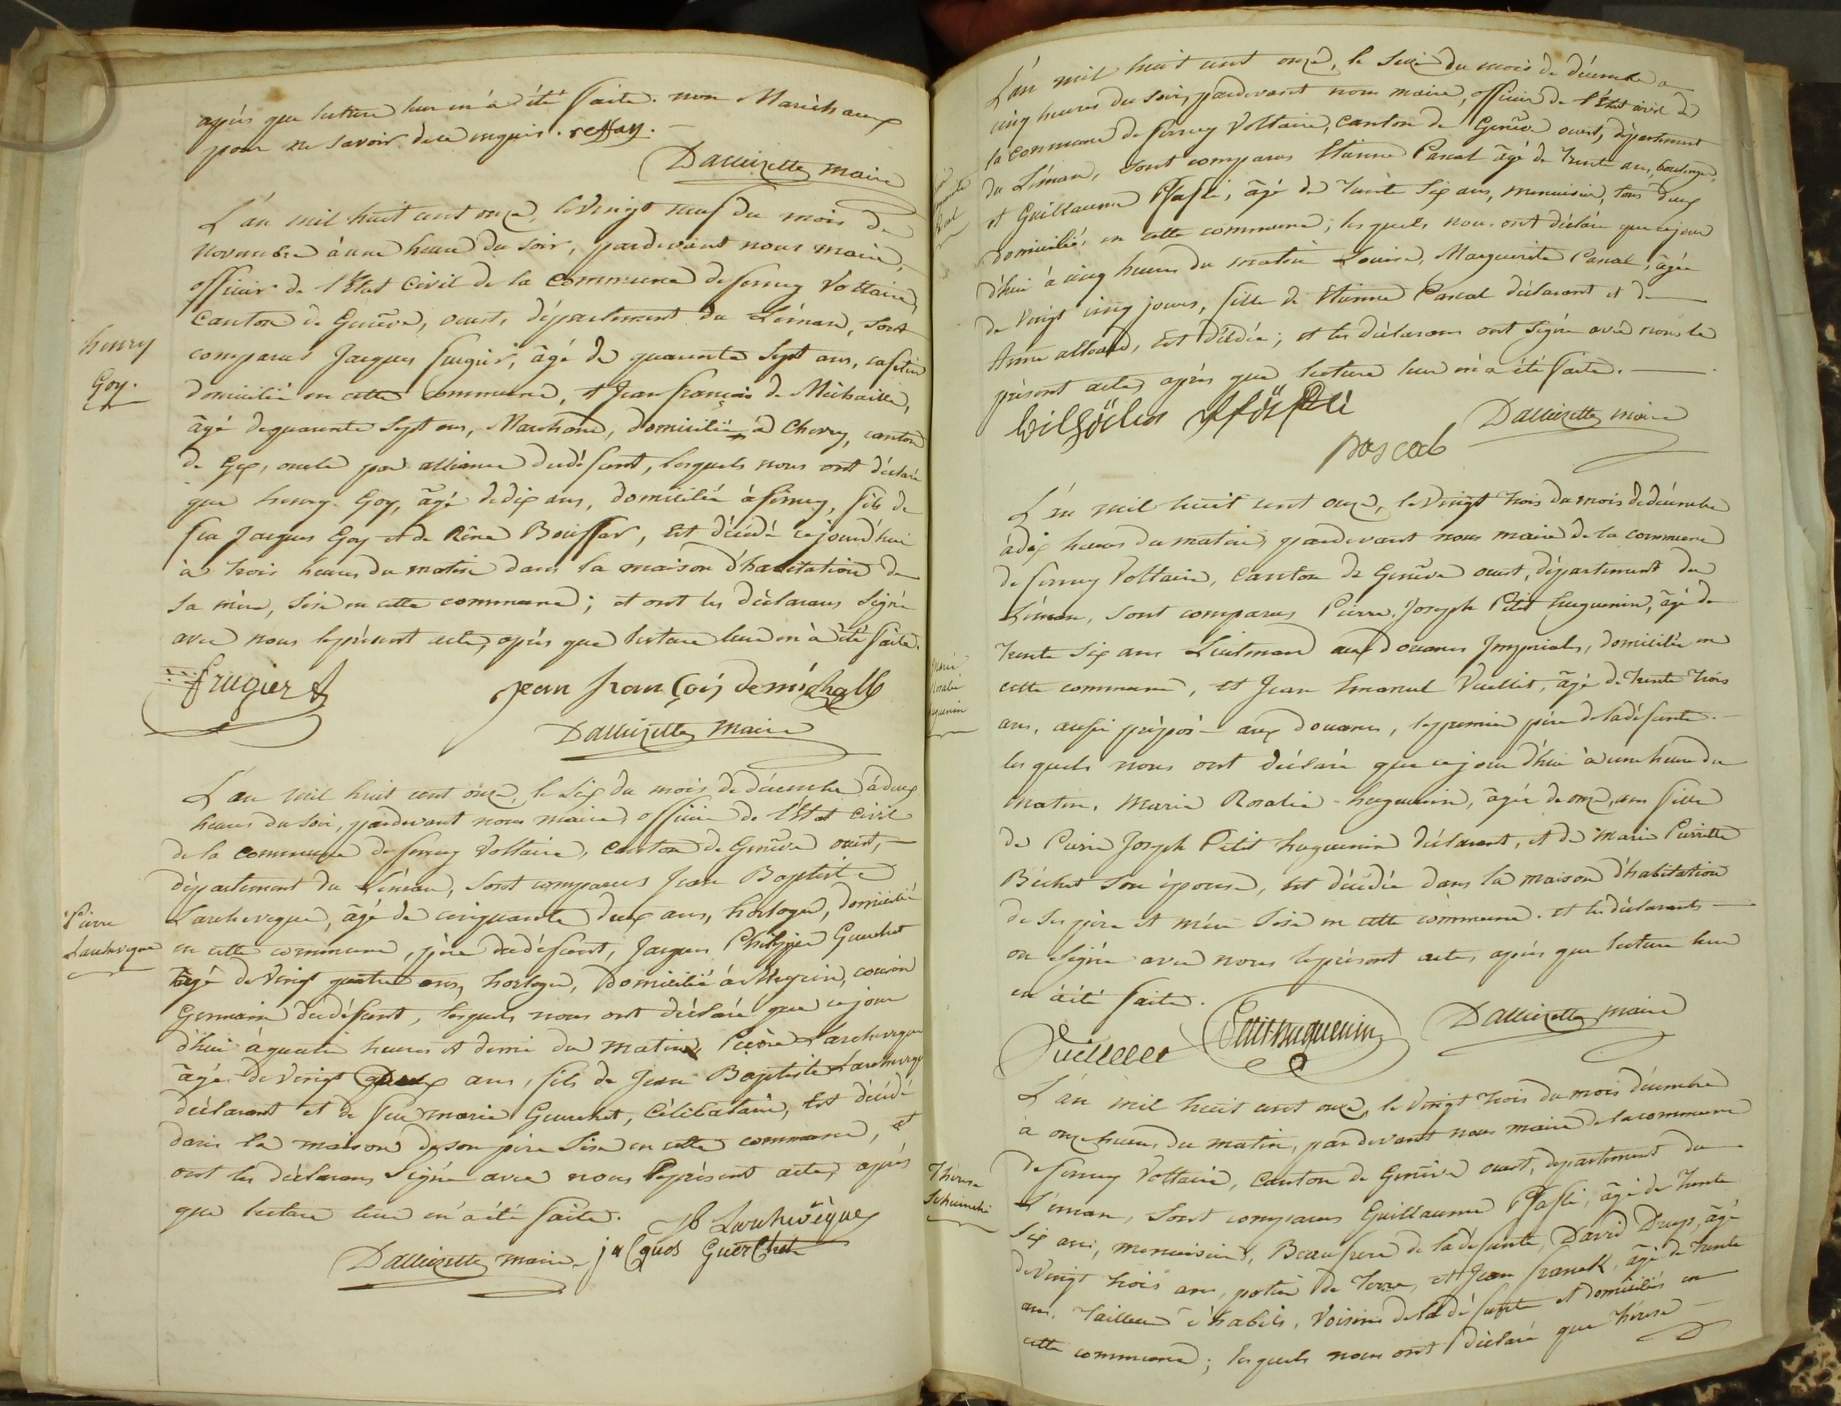 après que lecture leur en a été faite. non Maréchaux
pour ne savoir de ce enquis.
Dallizette maire
L'an mil huit cent onze, le vingt neuf du mois de
novembre à une heure du soir, pardevant nous maire,
officier de l'Etat Civil de la Commune de ferney Voltaire
Canton de Genêve, ouest, département du Léman, sont
comparus Jacques frugier, âgé de quarante sept ans,
domicilié en cette Commune, et Jean françois de Michaille,
âgé de quarante sept ans, Marchand, domicilié à Chevry, canton
de Gex, oncle par alliance du défunt, lesquels nous ont déclaré
que henry Goy, âgé de dix ans, domicilié à ferney, fils de
feu Jacques Goy et de Rêne Bouffar, Est décédé cejourd'hui
à trois heures du matin dans la maison d'habitation de
sa mère, sise en cette commune; et ont les déclarans signé
avec nous le présent acte, après que lecture leur en à été faite.
henry
Goy.
frugier
jean françois demichalle
Dallizette maire
L'an mil huit cent onze, le six du mois de décembre à deux
heures du soir, pardevant nous maire, officier de l'Etat Civil
de la Commune de ferney Voltaire, Canton de Genêve ouest,
département du Léman, sont comparus Jean Baptiste
Larcheveque, âgé de cinquante deux ans, horloger, domicilié
en cette commune, père du défunt, Jacques Philippe Guerchet
âgé de vingt quatre ans, horloger, Domicilié à Meyrin, cousin
Germain du défunt, lesquels nous ont déclaré que ce jour
d'hui à quatre heures et demi du matin, Pierre Larcheveque
âgé de vingt deux ans, fils de Jean Baptiste Larcheveque
déclarant et de feue marie Guerchet, Célibataire, Est décédé
dans la maison de son père sise en cette commune, et
ont les déclarans signé avec nous le présent acte, après
que lecture leur en a été faite.
Pierre
Larcheveque
JB Larchevêque
Dallizette maire jacques Guerchet
L'an mil huit cent onze, le seize du mois de décembre à
cinq heures du soir, pardevant nous maire, officier de l'Etat civil de
la commune de ferney Voltaire, canton de Genêve ouest, département
du Léman, sont comparus Etienne Pascal âgé de trente ans, boulanger,
et Guillaume Pfafli, âgé de trente six ans, menuisier, tous deux
domiciliés en cette commune; lesquels nous ont déclaré que cejour
d'hui à cinq heures du matin Louise, Marguerite Pascal, âgée
de vingt cinq jours, fille de Etienne Pascal déclarant et de
Anne, est décédée; et les déclarans ont signé avec nous le
présent acte, après que lecture leur en a été faite.
Dallizette maire
pascal
L'an mil huit cent onze, le vingt trois du mois de décembre
à dix heures du matin, pardevant nous maire de la commune
de ferney Voltaire, Canton de Genêve ouest, département du
Léman, sont comparus Pierre Joseph Petit huguenin, âgé de
trente six ans Lieutenant aux douanes Impériales, domicilié en
cette commune, et Jean Emanuel Vuillet, âgé de trente trois
ans, aussi préposé aux douanes, le premier père de la défunte.
lesquels nous ont déclaré que cejour d'hui à une heure du
matin, Marie Rosalie huguenin, âgée de onze ans fille
de Pierre Joseph Petit huguenin déclarant, et de Marie Pierrette
Béchet son épouse, est décédée dans la maison d'habitation
de ses père et mère sise en cette commune. et les déclarants
on signé avec nous le présent acte, après que lecture leur
en à été faite.
Marie
Rosalie
huguenin
Vuilleet Petithuguenin Dallizette maire
L'an mil huit cent onze, le vingt trois du mois décembre
à onze heures du matin, pardevant nous maire de la commune
de ferney Voltaire, Canton de Genêve ouest, département du
Léman, sont comparus Guillaume Pfafli, âgé de trente
six ans, menuisier, Beaufrere de la défunte, David Drups, âgé
de vingt trois ans, potier de terre, et Jean franck, âgé de trente
ans, tailleur d'habits, voisins de la défunte et domiciliés en
cette commune; lesquels nous ont déclaré que thérese
Thérese